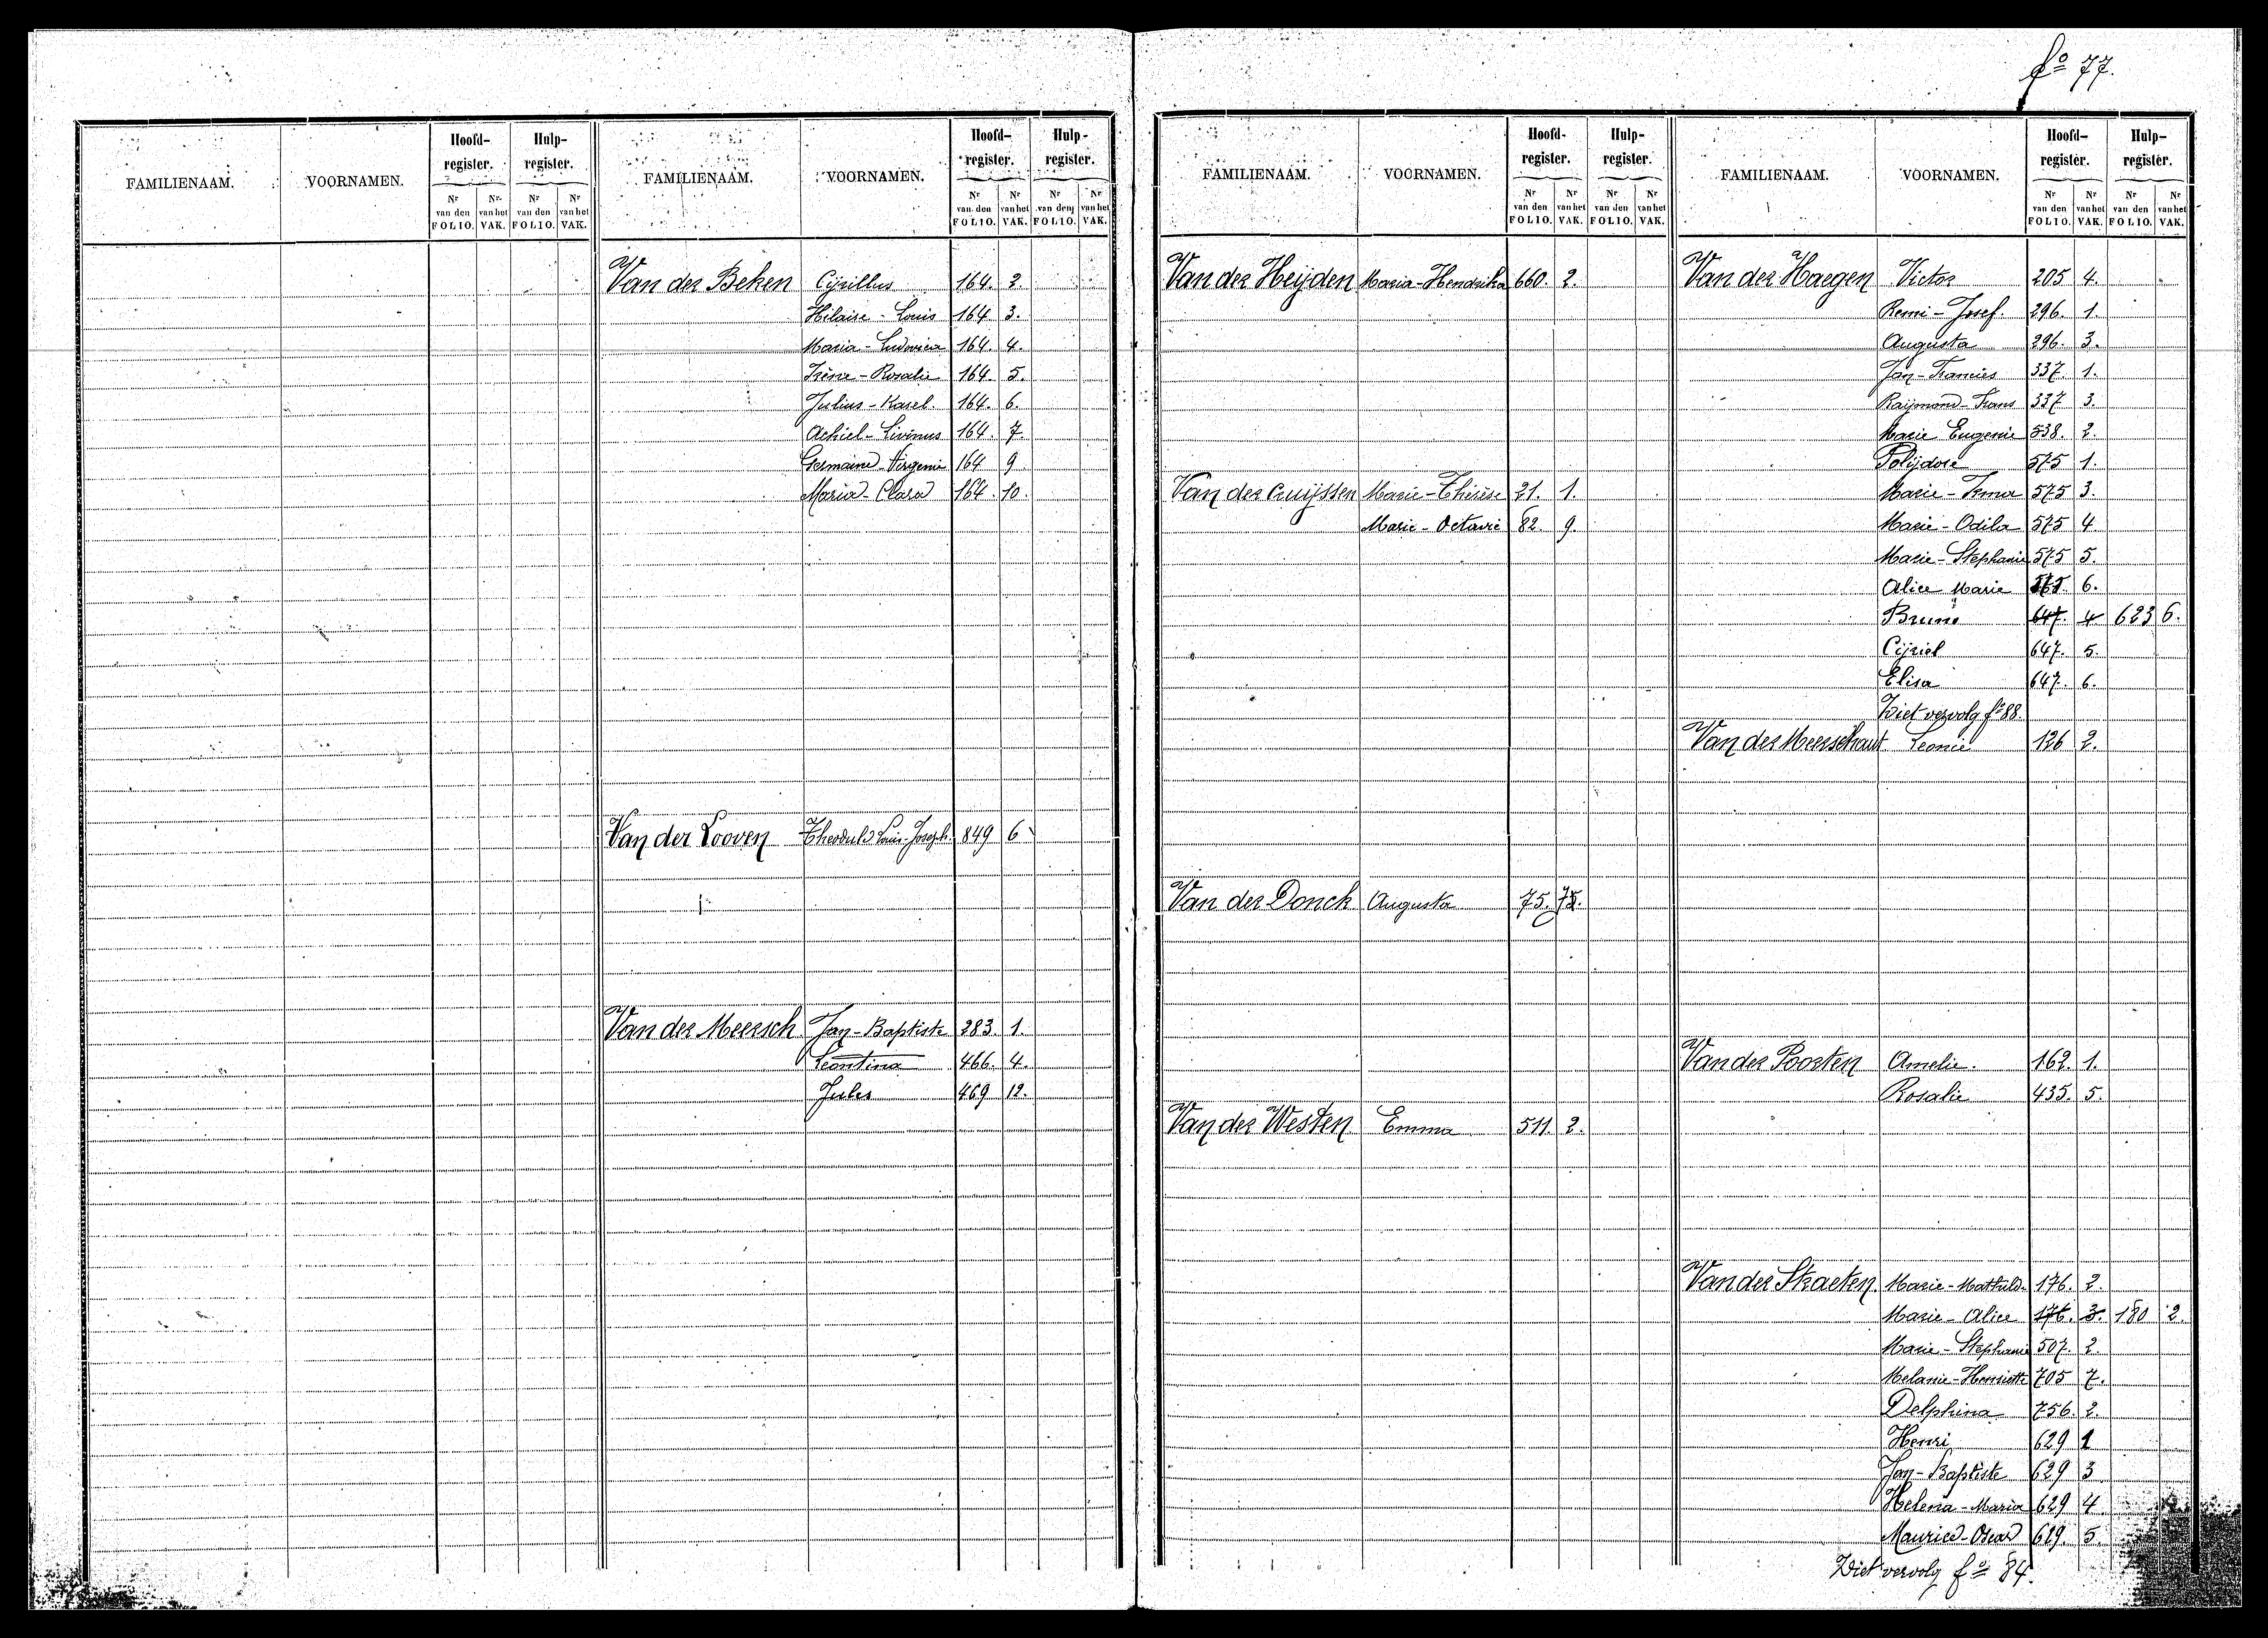 fº 77.
FAMILIENAAM. VOORNAMEN. Hoofd-register. Hulp-register. FAMILIENAAM. VOORNAMEN. Hoofd-register. Hulp-register.
Nr van den FOLIO. Nr van het VAK. Nr van den FOLIO. Nr van het VAK. Nr van den FOLIO. Nr van het VAK. Nr van den FOLIO. Nr van het VAK.
Van der Beken Cyrillus 164. 2.
Hilaire - Louis 164 3.
Maria - Ludovica 164. 4.
Irène - Rosalie 164. 5.
Julius - Karel. 164. 6.
Achiel - Livinus 164. 7.
Germaine - Virgenie 164 9
Maria - Clara 164. 10.
Van der Looven Theodule Louis-Joseph. 849 6
Van der Meersch Jan - Baptiste 283. 1.
Leontina 466. 4.
Jules 469 12.
FAMILIENAAM. VOORNAMEN. Hoofd-register. Hulp-register. FAMILIENAAM. VOORNAMEN. Hoofd-register. Hulp-register.
Nr van den FOLIO. Nr van het VAK. Nr van den FOLIO. Nr van het VAK. Nr van den FOLIO. Nr van het VAK. Nr van den FOLIO. Nr van het VAK.
Van der Heijden Maria - Hendrika 660. 2.
Van der Cruijssen Marie - Thérèse 21. 1.
Marie - Octavie 82. 9.
Van der Donck Augusta 75.
Van der Westen Emma 511. 2.
Van der Haegen Victor 205 4.
Remi - Josef. 296. 1.
Augusta 296. 3.
Jan - Francies 337. 1.
Raijmond - Frans 337 3.
Marie Eugenie 538. 2.
Polijdore 575 1.
Marie - Irma 575 3.
Marie - Odila 575 4.
Marie - Stephanie 575 5.
Alice Marie 575. 6.
Bruno 647. 4 623 6.
Cijriel 647. 5.
Elisa 647. 6.
Ziet vervolg fº 88.
Van der Meerschaut Leonie 126 2.
Van der Poorten Amelie. 162. 1.
Rosalie 435. 5.
Van der Straeten Marie - Mathild- 176. 2.
Marie - Alice 176. 3. 180 2.
Marie - Stephanie 507. 2.
Melanie - Henriette 705 7.
Delphina 756. 2.
Henri 629 1
Jan - Baptiste 629 3
Helena - Maria 629 4
Maurice - Oscar 629. 5.
Ziet vervolg fº 84.